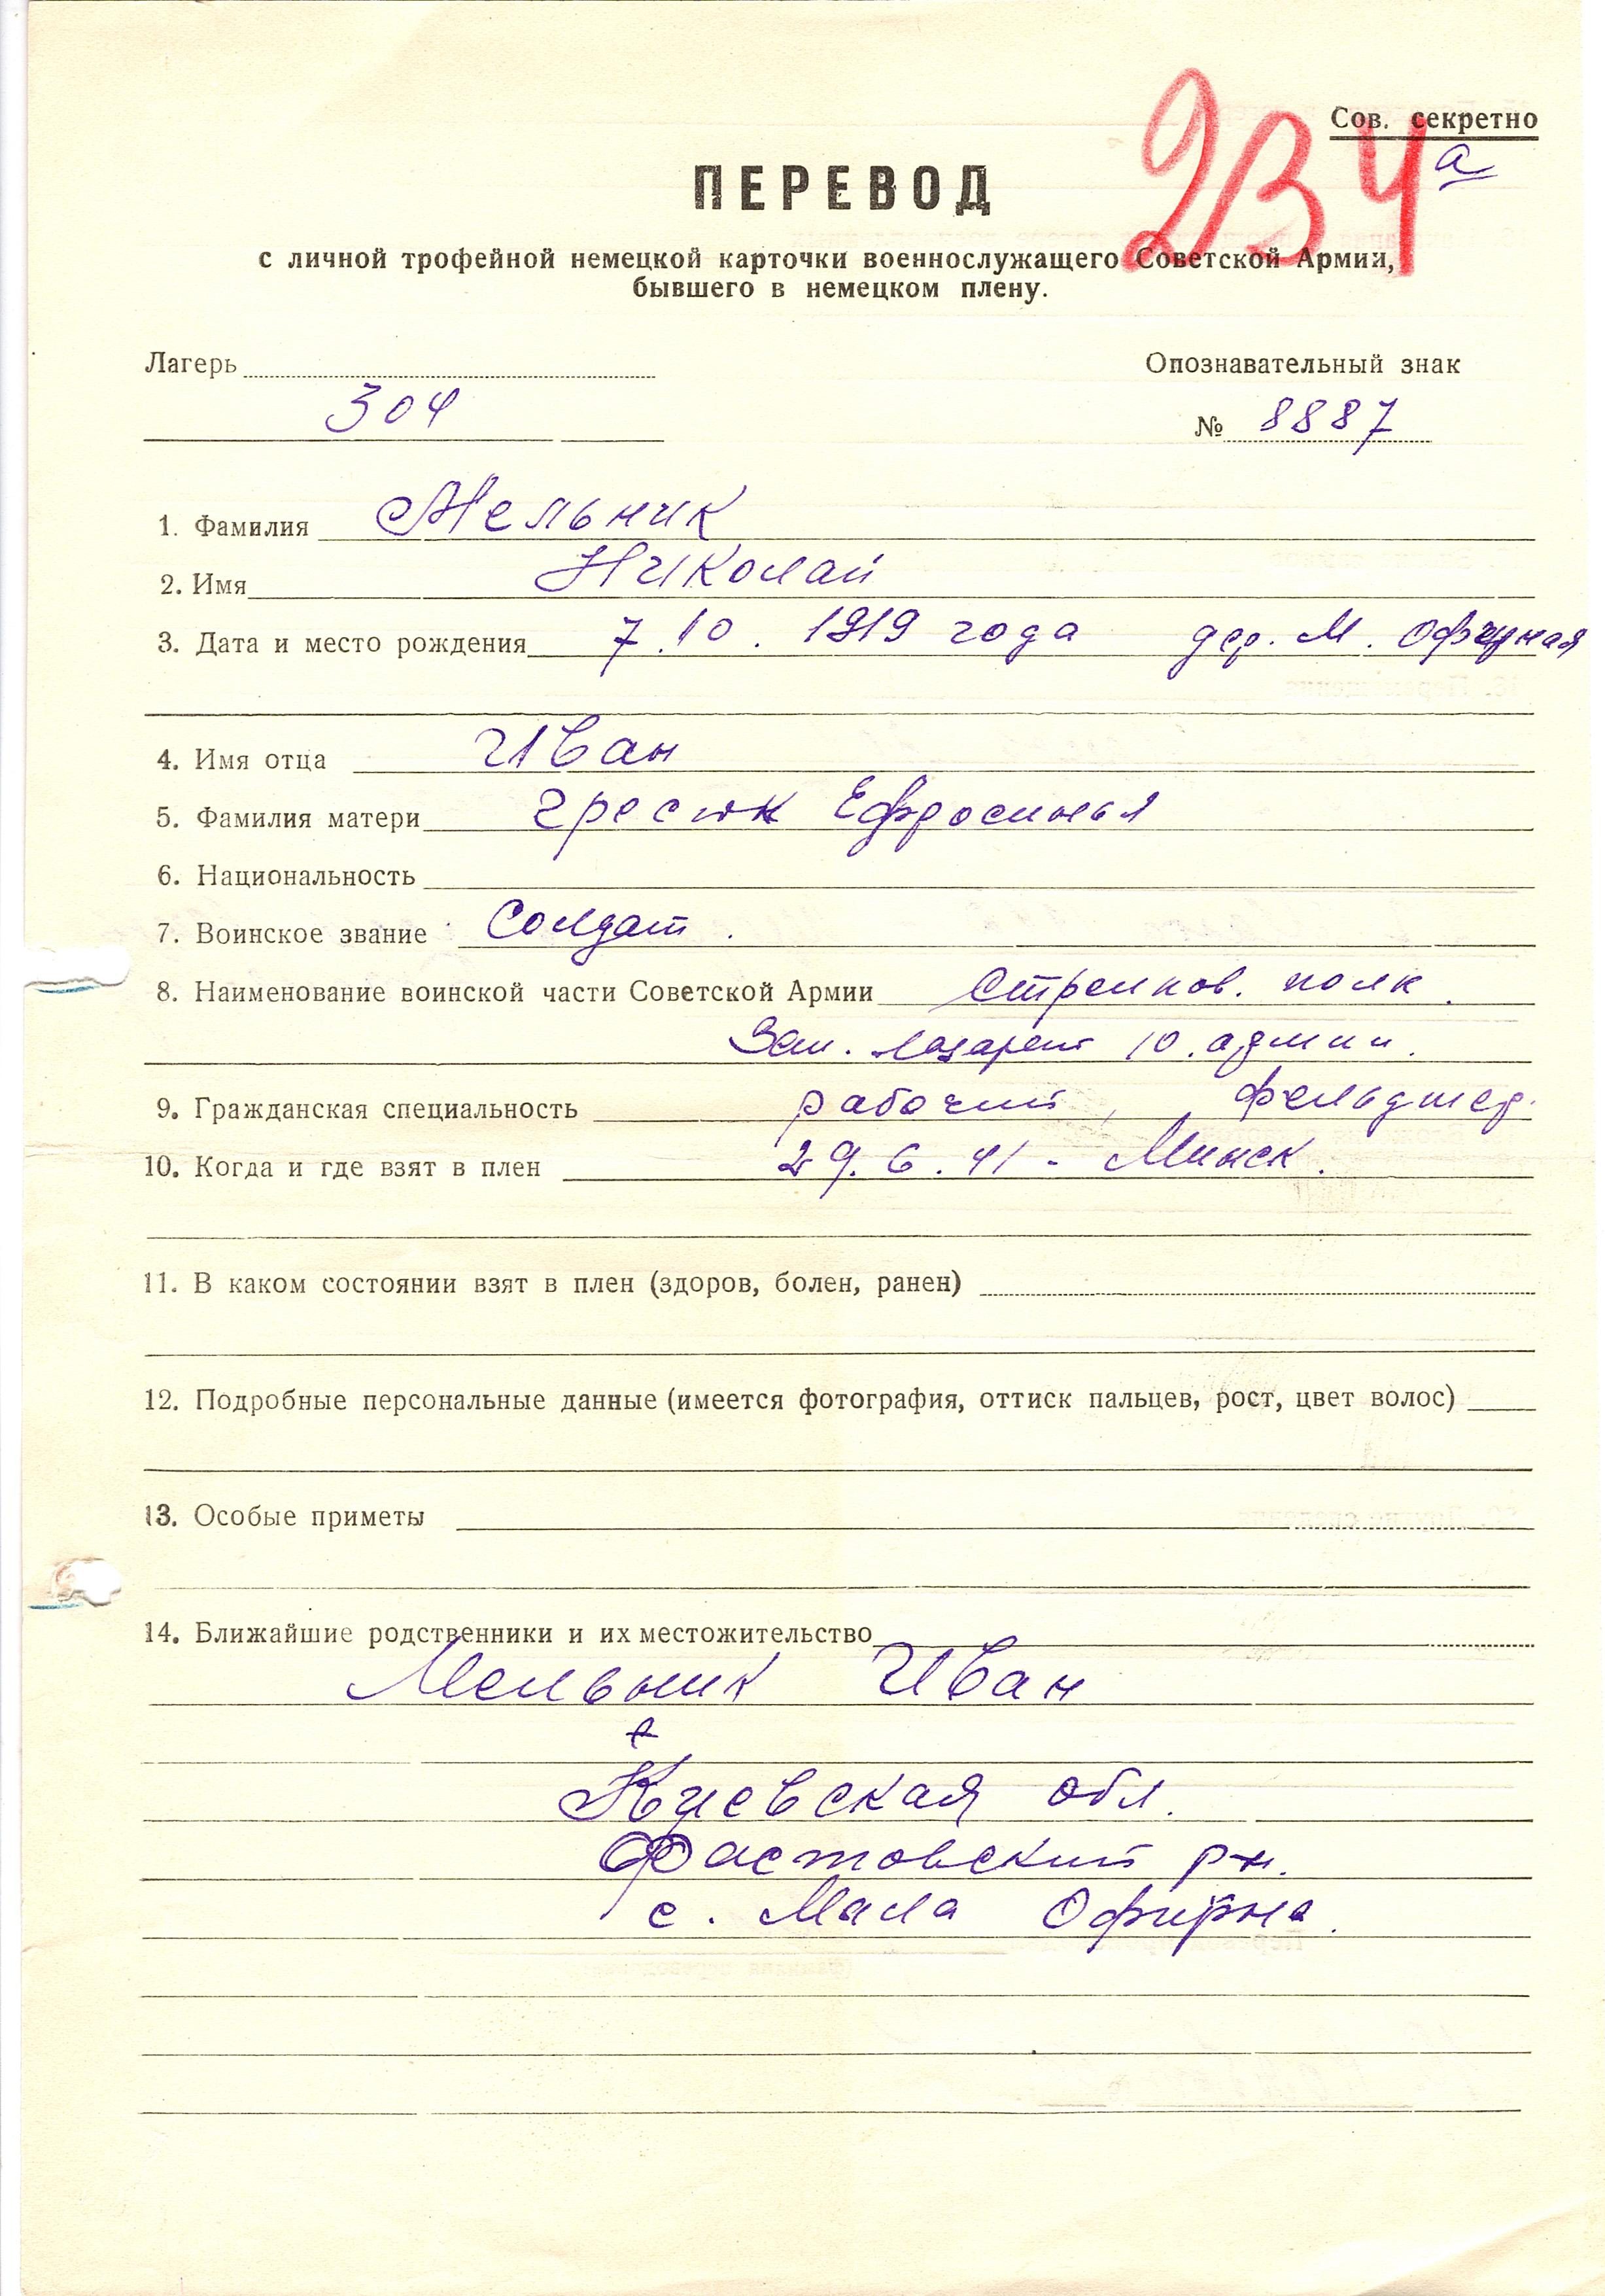 Сов. секретно
234 а
ПЕРЕВОД
с личной трофейной немецкой карточки военнослужащего Советской Армии,
бывшего в немецком плену.
Лагерь
Опознавательный знак
304
№ 8887
1. Фамилия Мельник
2. Имя Николай
3. Дата и место рождения 7.10.1919 года дер. М. Офирная
4. Имя отца Иван
5. Фамилия матери Гресюк Ефросинья
6. Национальность
7. Воинское звание Солдат.
8. Наименование воинской части Советской Армии Стрелков. полк.
Зап. лазарет 10. админ.
9. Гражданская специальность рабочий, фельдшер.
10. Когда и где взят в плен 29.6.41 - Минск.
11. В каком состоянии взят в плен (здоров, болен, ранен)
12. Подробные персональные данные (имеется фотография, оттиск пальцев, рост, цвет волос)
13. Особые приметы
14. Ближайшие родственники и их местожительство
Мельник Иван
Киевская обл.
Фастовский р-н.
с. Мала Офирна.